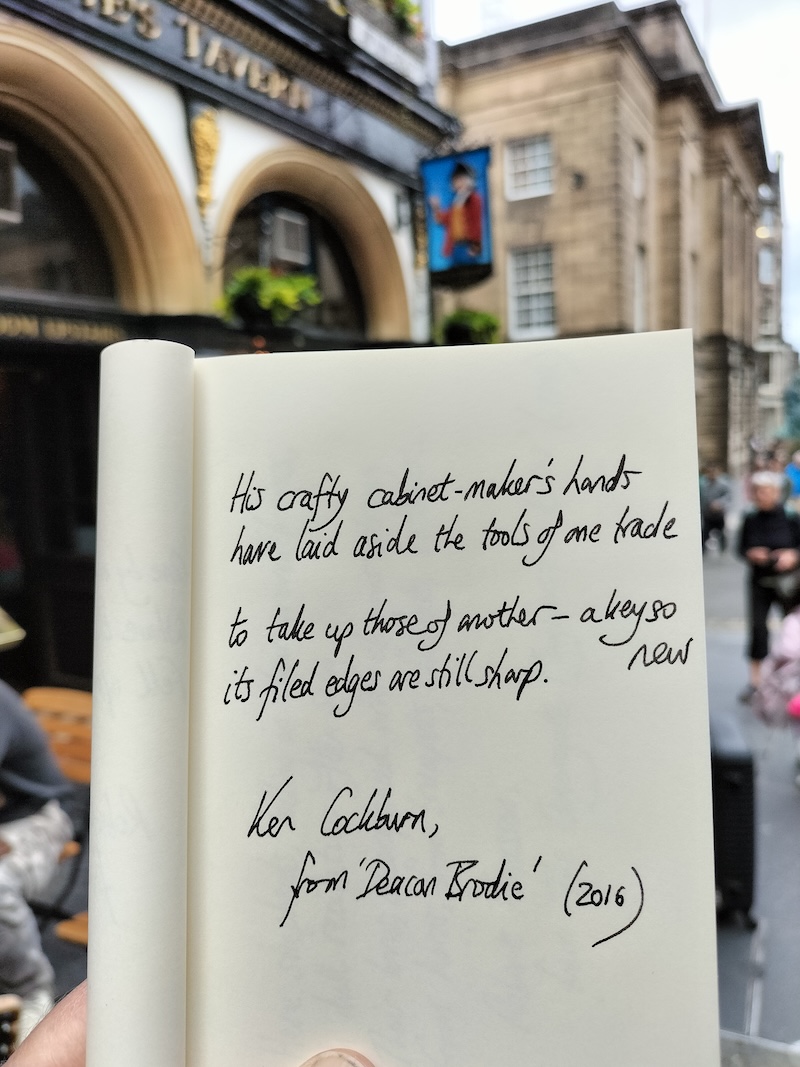 E'S TAVERN
His crafty cabinet-maker's hands
have laid aside the tools of one trade
to take up those of another – a key so
new
its filed edges are still sharp.
Ken Cockburn,
from 'Deacon Brodie' (2016)